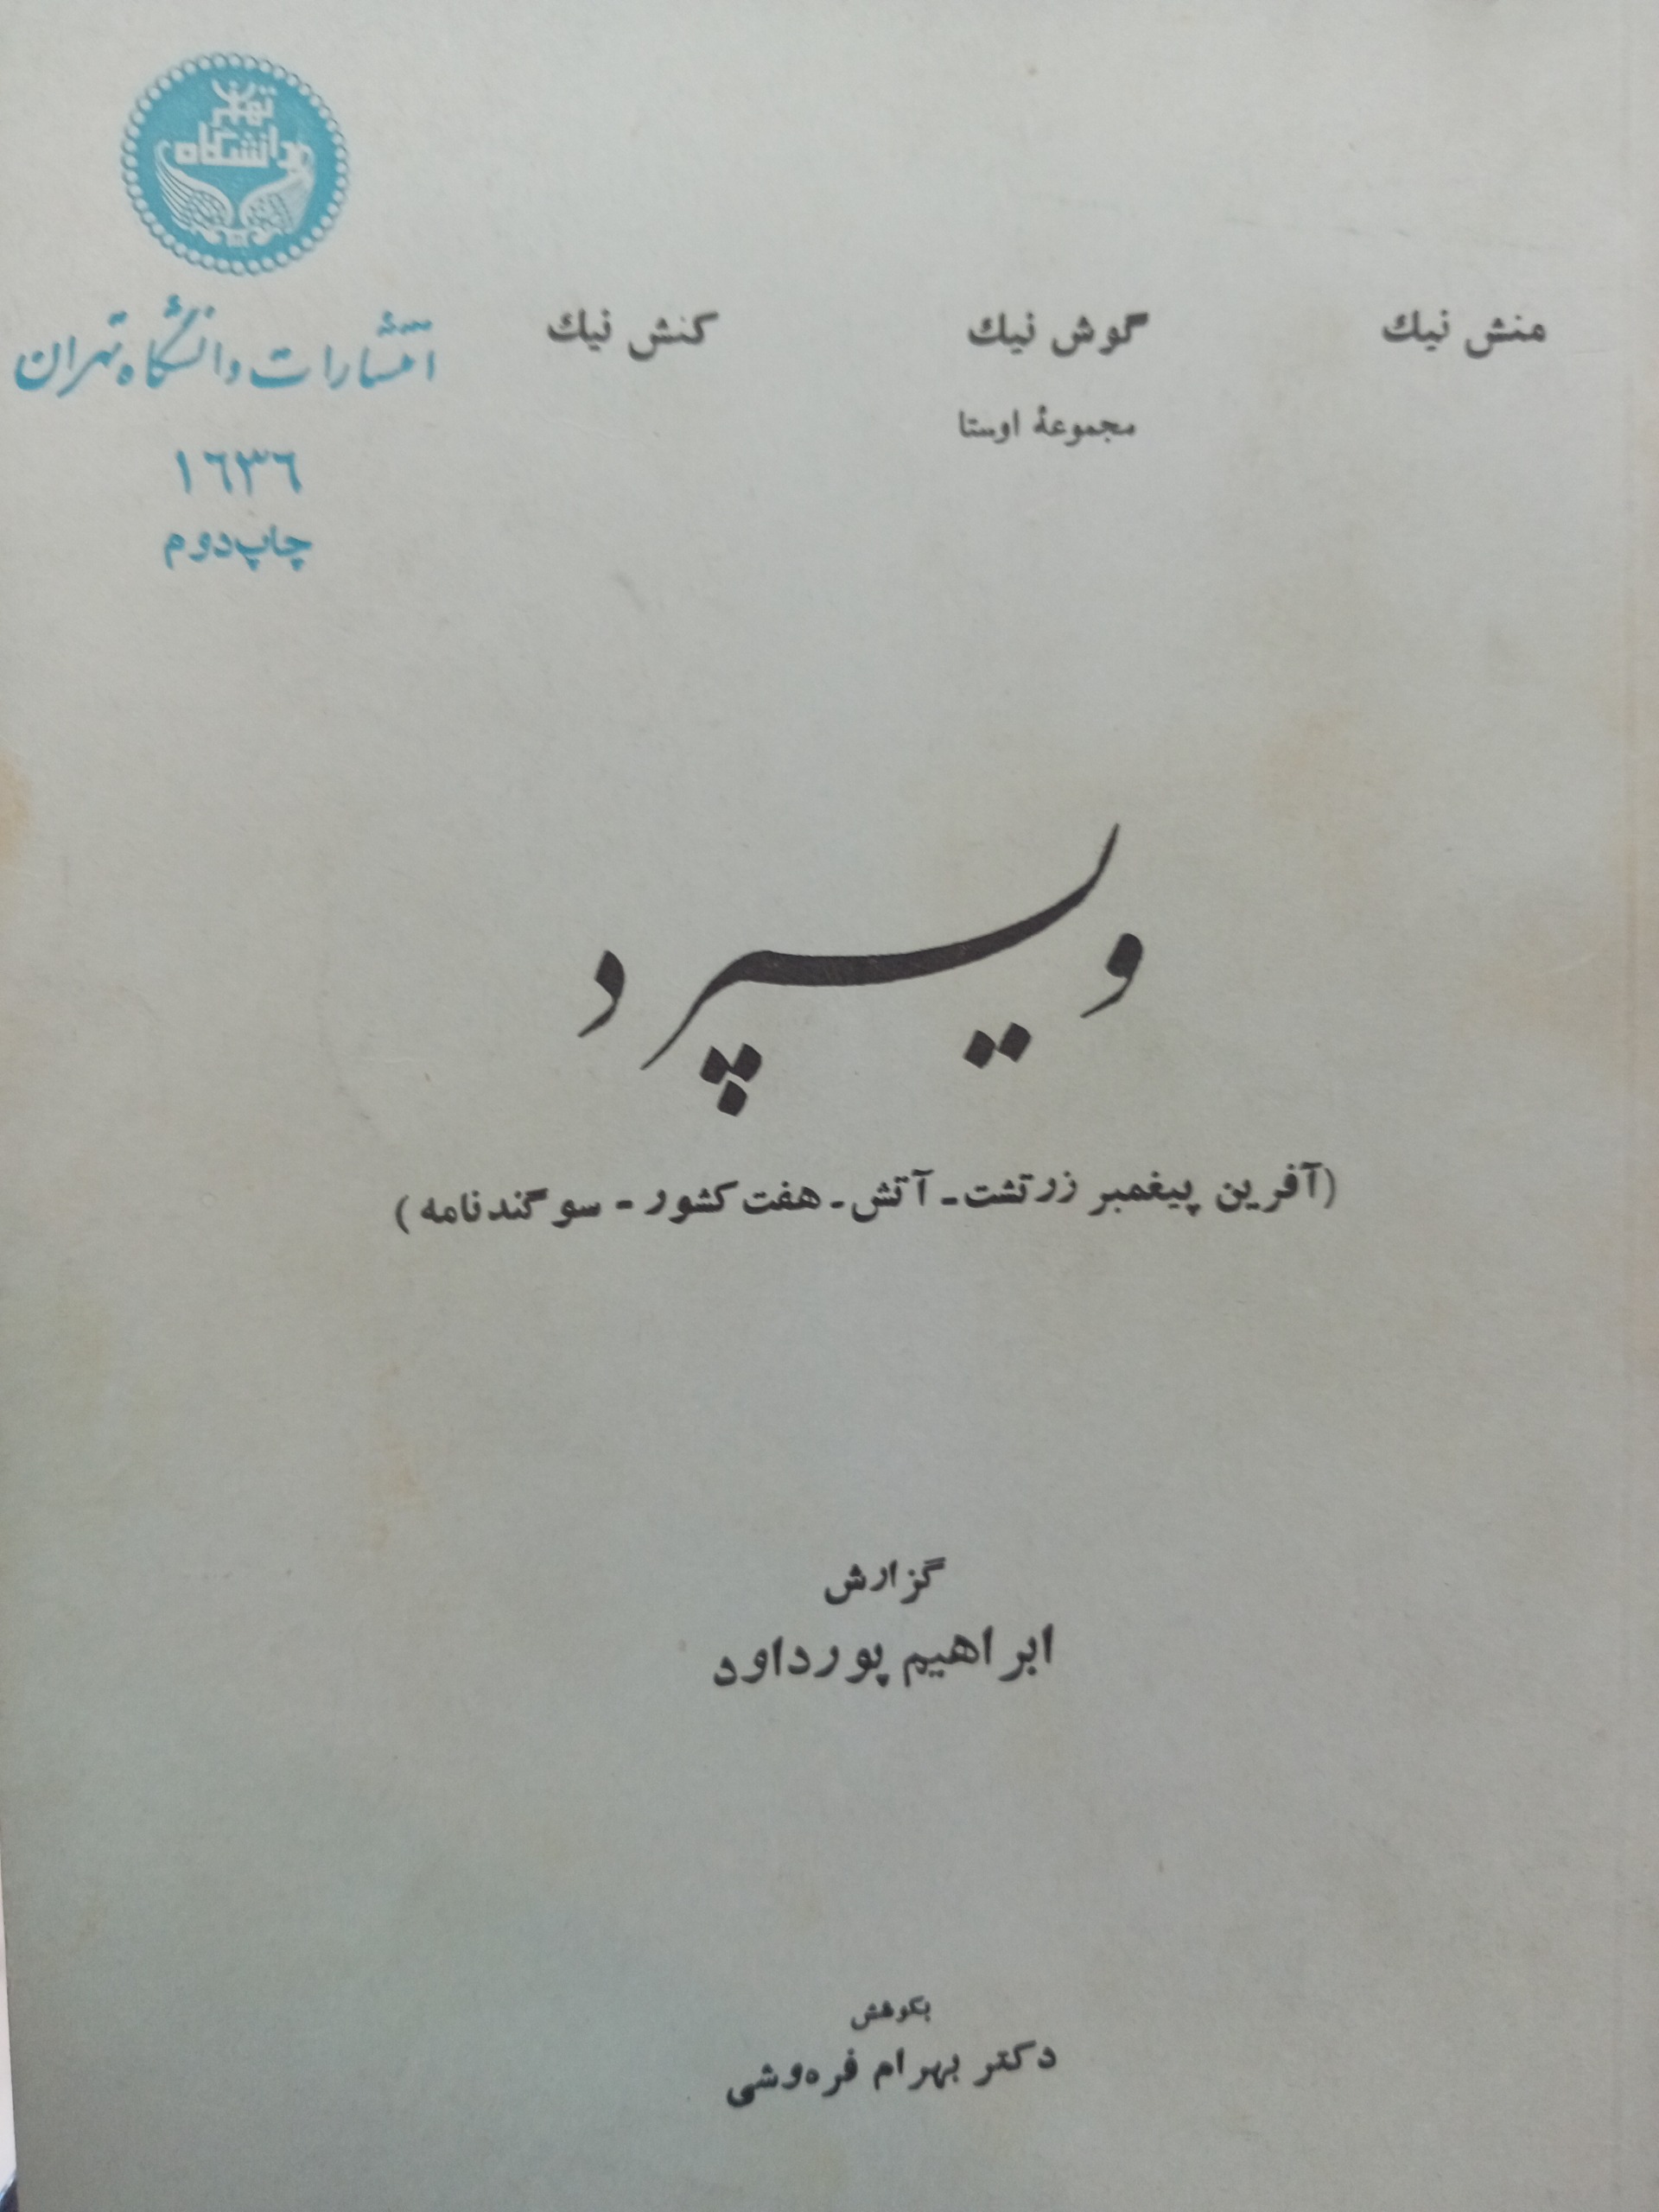 تهران
دانشگاه
انتشارات دانشگاه تهران
١٦٣٦
چاپ دوم
منش نیك گوش نیك کنش نیك
مجموعهٔ اوستا
ویسپرد
(آفرین پیغمبر زرتشت - آتش - هفت کشور - سوگندنامه)
گزارش
ابراهیم پورداود
بکوشش
دکتر بهرام فره‌وشی